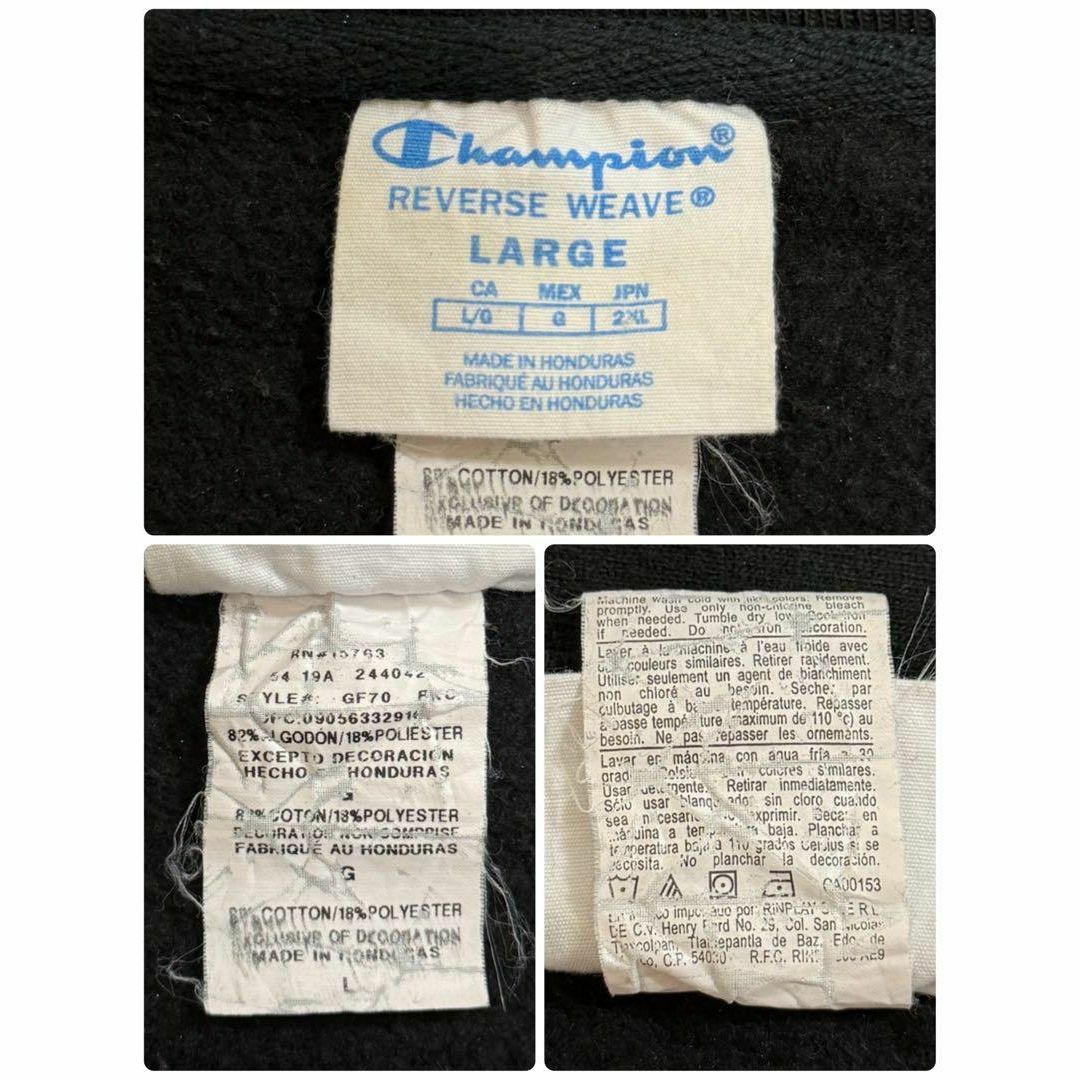 Champion®
REVERSE WEAVE®
LARGE
CA MEX JPN
L/G G 2XL
MADE IN HONDURAS
FABRIQUÉ AU HONDURAS
HECHO EN HONDURAS
COTTON/18%POLYESTER
EXCLUSIVE OF DECORATION
MADE IN HONDURAS
RN#15763
54 19A 24404
STYLE#: GF70
82%ALGODÓN/18%POLIÉSTER
EXCEPTO DECORACIÓN
HECHO HONDURAS
G
COTON/18%POLYESTER
DECORATION NON COMPRISE
FABRIQUÉ AU HONDURAS
G
COTTON/18%POLYESTER
EXCLUSIVE OF DECORATION
MADE IN HONDURAS
L
Machine wash cold with like colors. Remove
promptly. Use only non-chlorine bleach
when needed. Tumble dry low. Cool iron
if needed. Do not iron decoration.
Laver à la machine à l'eau froide avec
de couleurs similaires. Retirer rapidement.
Utiliser seulement un agent de blanchiment
non chloré au besoin. Séchez par
culbutage à basse température. Repasser
à basse température (maximum de 110 °c) au
besoin. Ne pas repasser les ornements.
Lavar en máquina con agua fría a 30
colores similares.
Usar detergente. Retirar inmediatamente.
Sólo usar blanqueador sin cloro cuando
sea necesario exprimir. Secar en
máquina a temperatura baja. Planchar a
temperatura baja a 110 grados Celsius si se
necesita. No planchar la decoración.
CA00153
por RINPLAY
DE C.V. Henry Ford No. 29, Col. San Nicolas
Tlaxcolpan, Tlalnepantla de Baz, Edo. de
C.P. 54030 R.F.C.